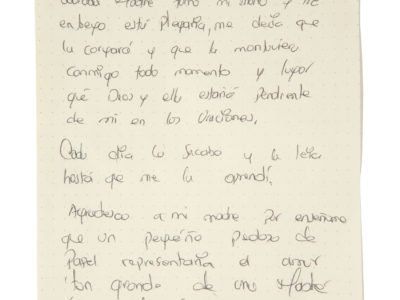 madre tomó mi mano y me
entrego esta Plegaria, me decia que
la comprará y que la mantuviera
conmigo todo momento y lugar
qué Dios y ella estaria pendiente
de mi en los
Cada día la sacaba y la leía
hastá que me la aprendí.
Agradezco a mi madre por enseñarme
que un pequeño pedazo de
Papel representaria el amor
tan grande de una Madre